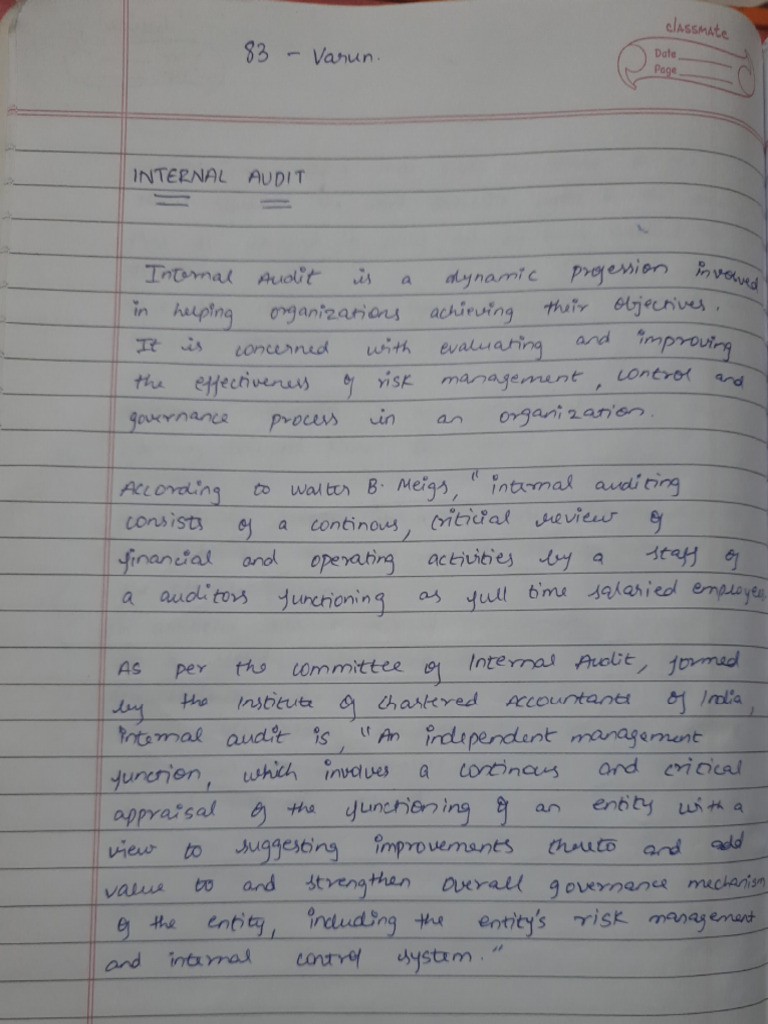 classmate
Date
Page
83 - Varun.
INTERNAL AUDIT
Internal Audit is a dynamic profession involved
in helping organizations achieving their objectives.
It is concerned with evaluating and improving
the effectiveness of risk management, control and
governance process in an organization.
According to Walter B. Meigs, "internal auditing
consists of a continous, criticial review of
financial and operating activities by a staff of
a auditors functioning as full time salaried employees
As per the committee of Internal Audit, formed
by the Institute of Chartered Accountants of India,
internal audit is, "An independent management
function, which involves a continous and critical
appraisal of the functioning of an entity with a
view to suggesting improvements thereto and add
value to and strengthen overall governance mechanism
of the entity, including the entity's risk management
and internal control system."